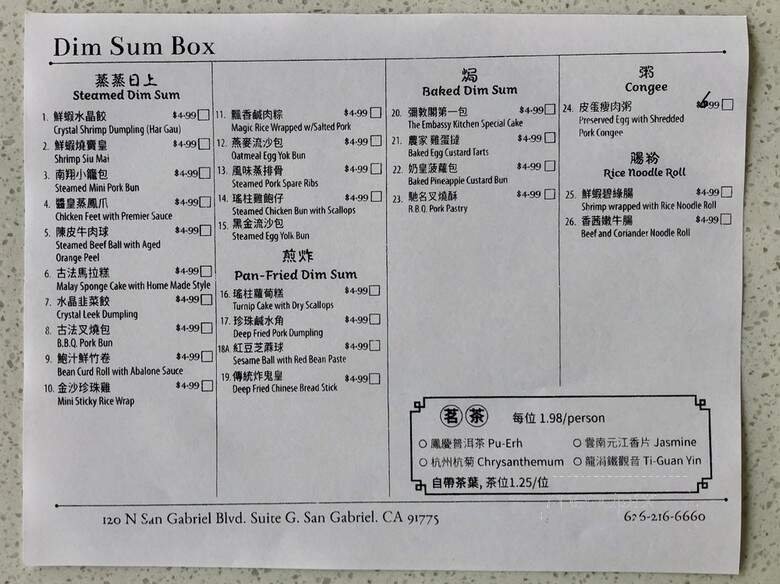 Dim Sum Box
蒸蒸日上
Steamed Dim Sum
1. 鮮蝦水晶餃 $4.99
Crystal Shrimp Dumpling (Har Gau)
2. 鮮蝦燒賣皇 $4.99
Shrimp Siu Mai
3. 南翔小籠包 $4.99
Steamed Mini Pork Bun
4. 醬皇蒸鳳爪 $4.99
Chicken Feet with Premier Sauce
5. 陳皮牛肉球 $4.99
Steamed Beef Ball with Aged
Orange Peel
6. 古法馬拉糕 $4.99
Malay Sponge Cake with Home Made Style
7. 水晶韭菜餃 $4.99
Crystal Leek Dumpling
8. 古法叉燒包 $4.99
B.B.Q. Pork Bun
9. 鮑汁鮮竹卷 $4.99
Bean Curd Roll with Abalone Sauce
10. 金沙珍珠雞 $4.99
Mini Sticky Rice Wrap
11. 飄香鹹肉粽 $4.99
Magic Rice Wrapped w/Salted Pork
12. 燕麥流沙包 $4.99
Oatmeal Egg Yok Bun
13. 風味蒸排骨 $4.99
Steamed Pork Spare Ribs
14. 瑤柱雞飽仔 $4.99
Steamed Chicken Bun with Scallops
15. 黑金流沙包 $4.99
Steamed Egg Yolk Bun
煎炸
Pan-Fried Dim Sum
16. 瑤柱蘿蔔糕 $4.99
Turnip Cake with Dry Scallops
17. 珍珠鹹水角 $4.99
Deep Fried Pork Dumpling
18A. 紅豆芝蔴球 $4.99
Sesame Ball with Red Bean Paste
19. 傳統炸鬼皇 $4.99
Deep Fried Chinese Bread Stick
焗
Baked Dim Sum
20. 彌敦閣第一包 $4.99
The Embassy Kitchen Special Cake
21. 農家雞蛋撻 $4.99
Baked Egg Custard Tarts
22. 奶皇菠蘿包 $4.99
Baked Pineapple Custard Bun
23. 馳名叉燒酥 $4.99
R.B.Q. Pork Pastry
粥
Congee
24. 皮蛋瘦肉粥 $6.99
Preserved Egg with Shredded
Pork Congee
腸粉
Rice Noodle Roll
25. 鮮蝦碧綠腸 $4.99
Shrimp wrapped with Rice Noodle Roll
26. 香茜嫩牛腸 $4.99
Beef and Coriander Noodle Roll
茗茶 每位 1.98/person
鳳慶普洱茶 Pu-Erh
雲南元江香片 Jasmine
杭州杭菊 Chrysanthemum
龍涓鐵觀音 Ti-Guan Yin
自帶茶葉, 茶位1.25/位
120 N San Gabriel Blvd. Suite G. San Gabriel. CA 91775
626-216-6660